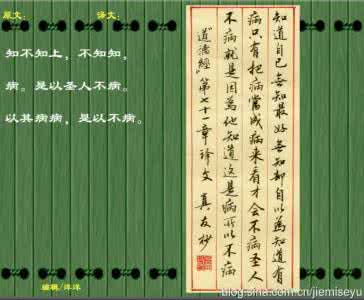 原文：
译文：
知不知上，不知知，
病。是以圣人不病。
以其病病，是以不病。
知道自己无知最好无知却自以为知道有
病只有把病当成病来看才会不病圣人
不病就是因为他知道这是病所以不病
道德经第七十一章译文 真友抄
编辑/洋洋
blog.sina.com.cn/jiemiseyu